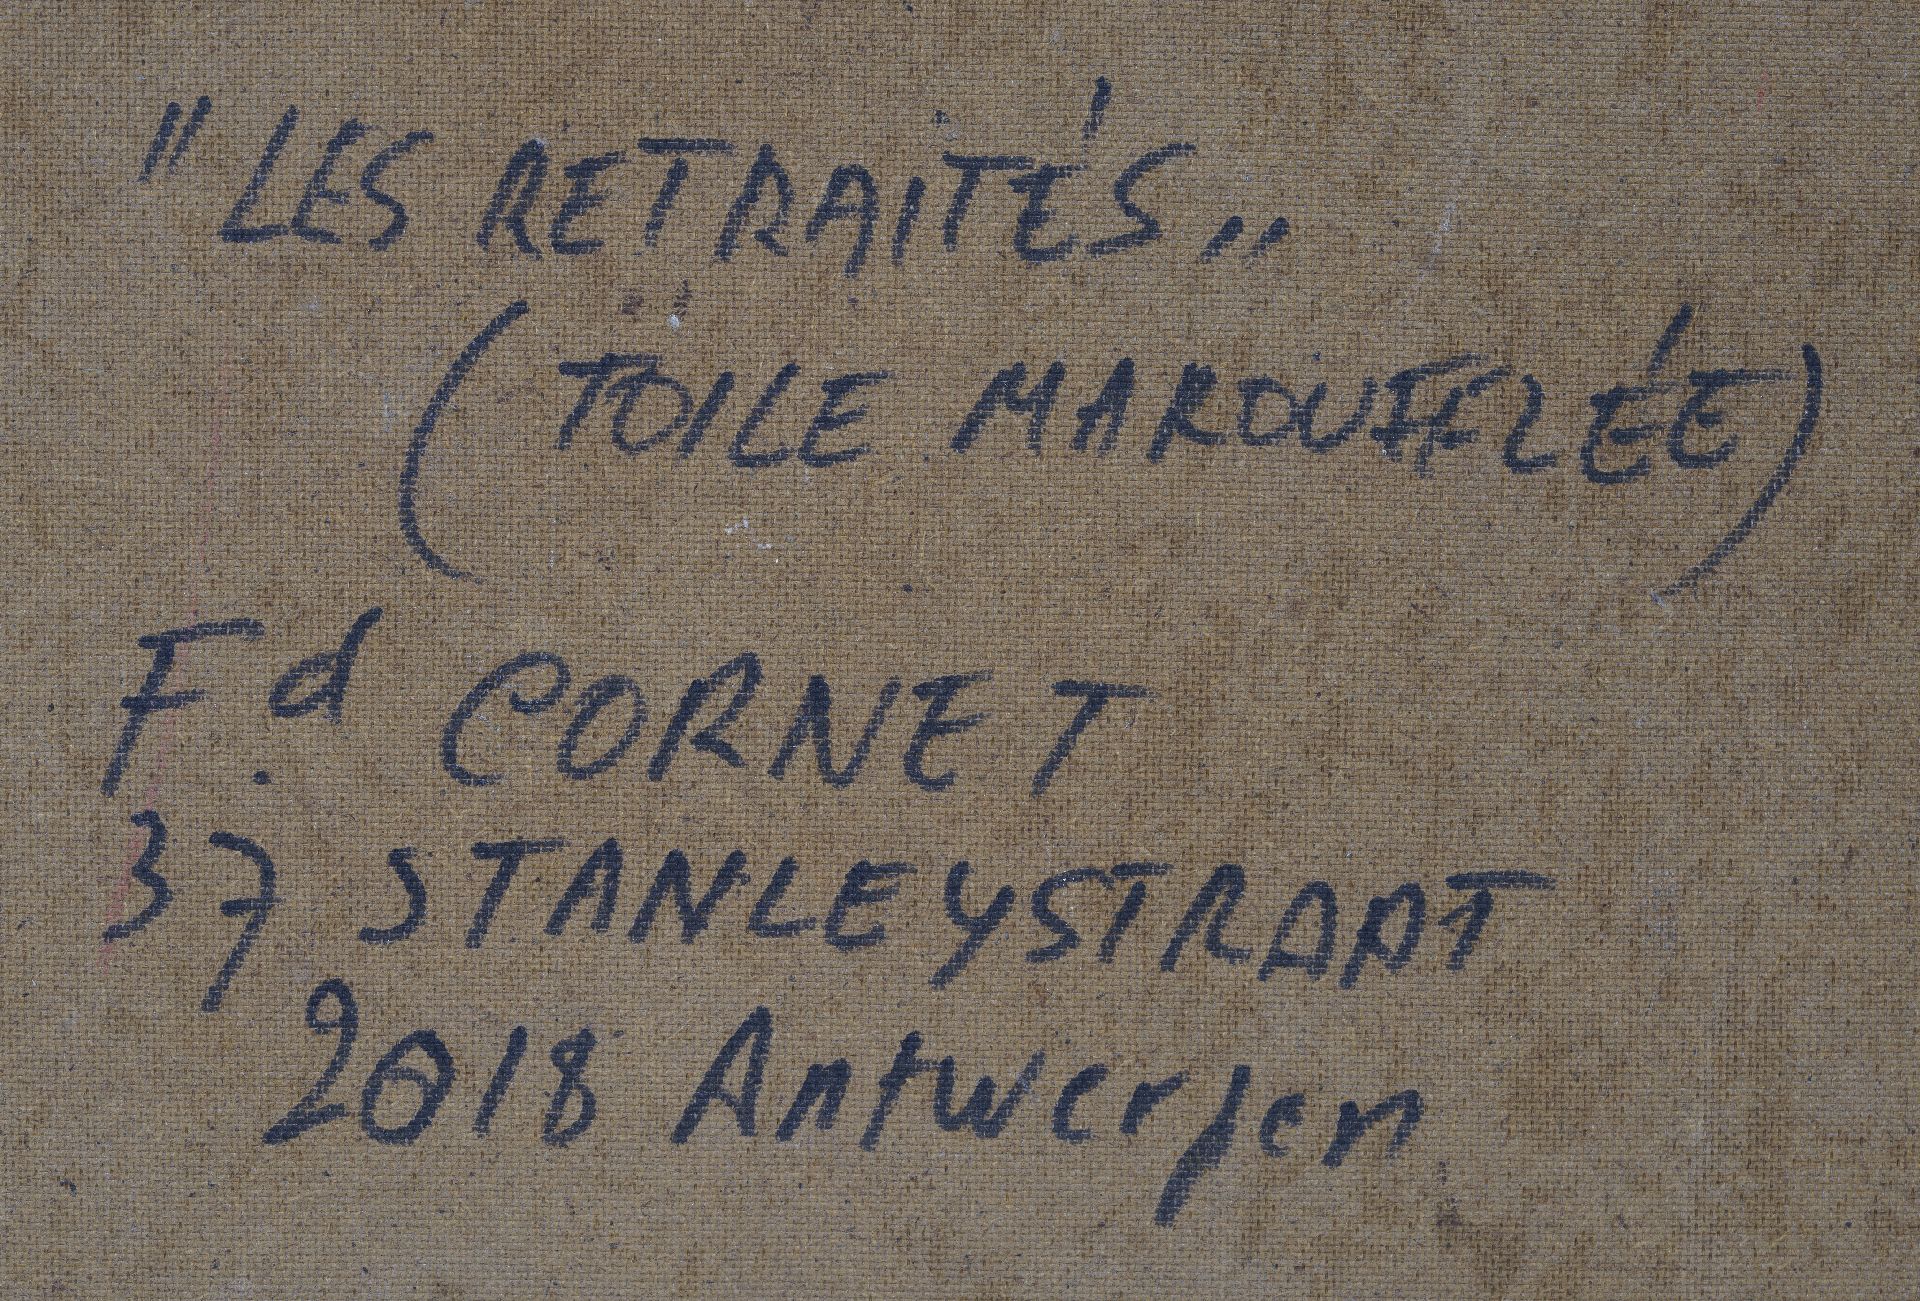 "LES RETRAITÉS„
(TOILE MAROUFLÉE)
F.d CORNET
37 STANLEYSTRAAT
2018 Antwerpen